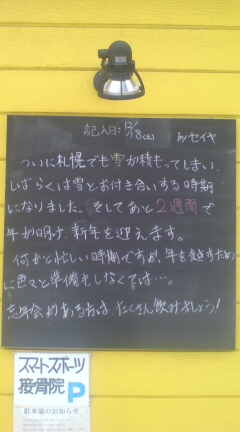 記入日: 12/8(土) by セイヤ
ついに札幌でも雪が積もってしまい、
しばらくは雪とお付き合いする時期
になりました。そしてあと2週間で
年が明け、新年を迎えます。
何かと忙しい時期ですが、年を越すため
に色々と準備をしなくては…。
忘年会がある方は、たくさん飲みましょう!
スマートスポーツ
接骨院 P
駐車場のお知らせ